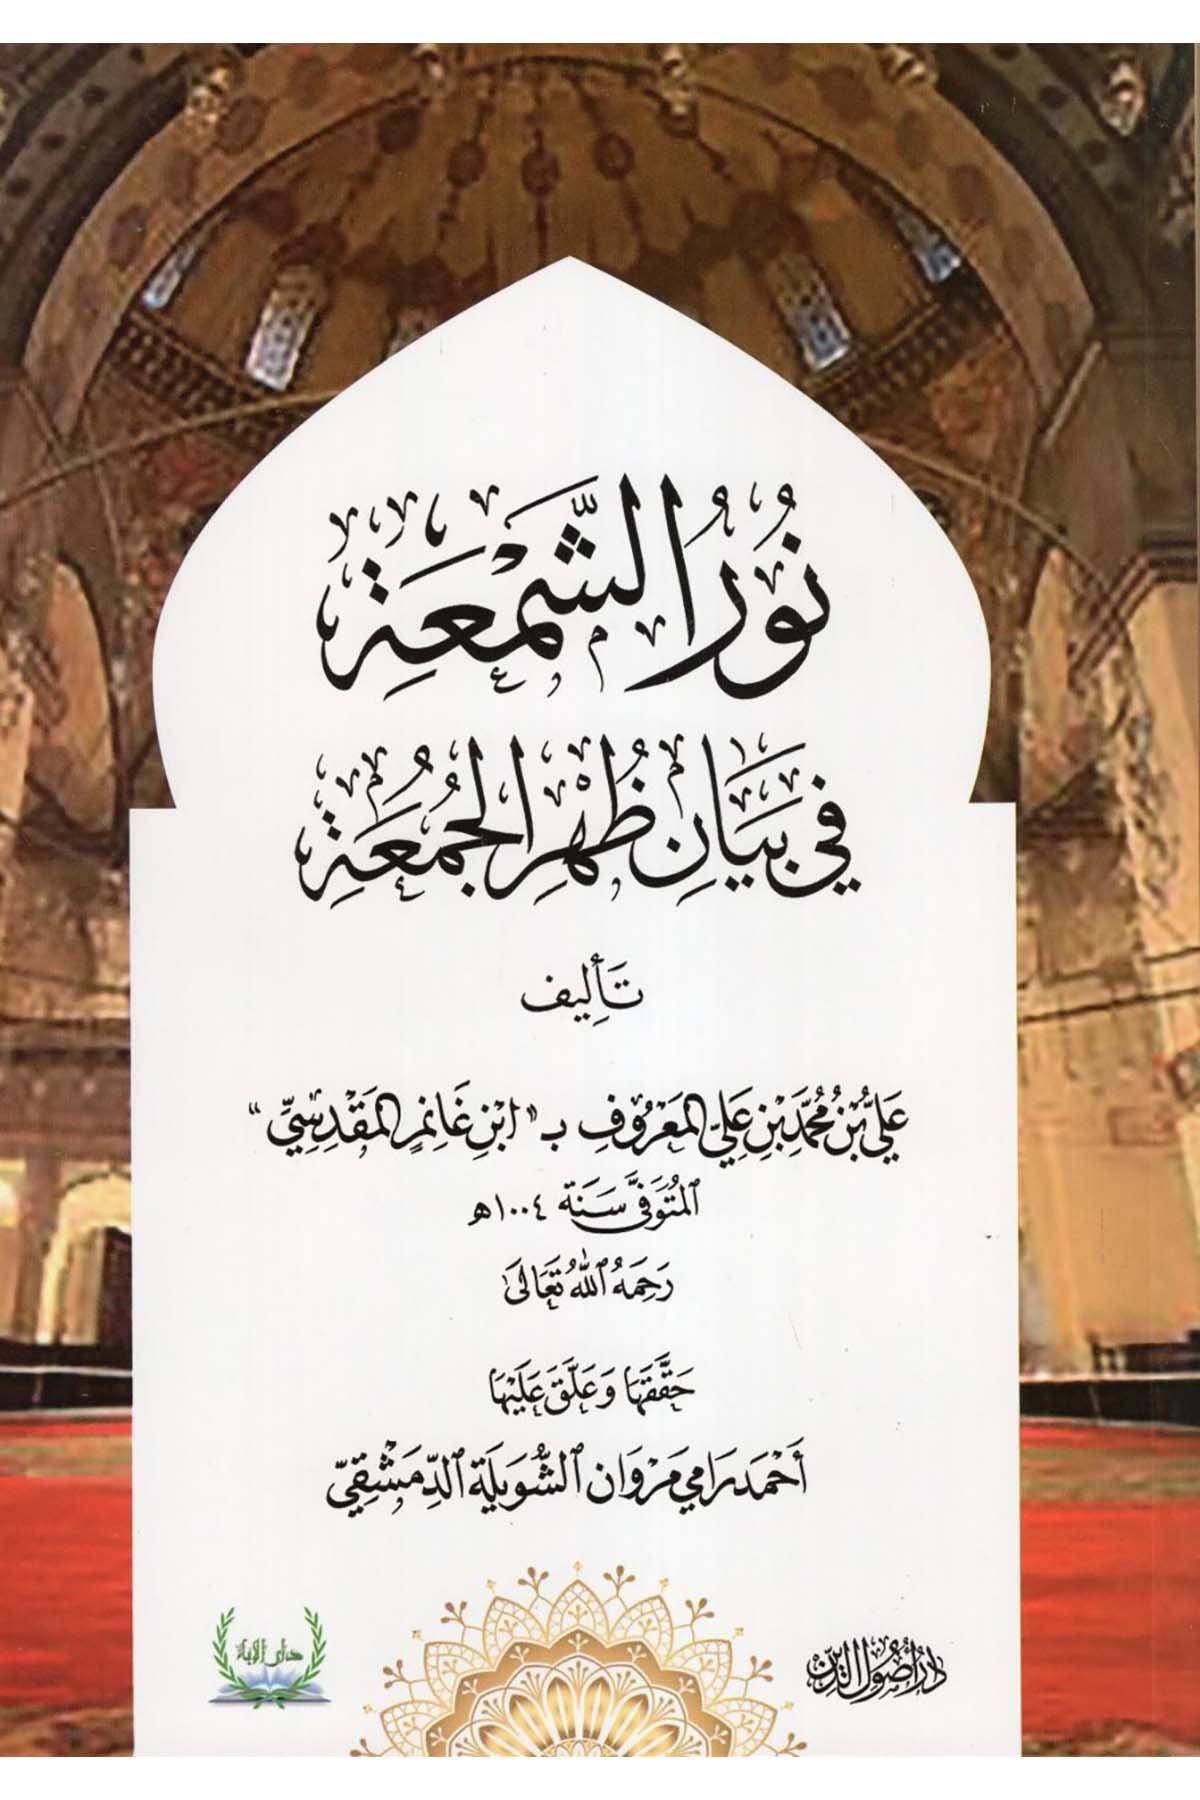 نُورُ الشَّمْعَةِ
فِي بَيَانِ ظُهْرِ الجُمُعَةِ
تَأْلِيف
عَلِيِّ بْنِ مُحَمَّدِ بْنِ عَلِيٍّ المَعْرُوفِ بـ "ابْنِ غَانِمٍ المَقْدِسِيِّ"
المُتَوَفَّى سَنَة ١٠٠٤هـ
رَحِمَهُ اللّٰهُ تَعَالَى
حَقَّقَهَا وَعَلَّقَ عَلَيْهَا
أَحْمَد رَامِي مَرْوَان الشُّوَيْلَة الدِّمَشْقِيّ
دَارُ أُصُولِ الدِّينِ
دار الآية